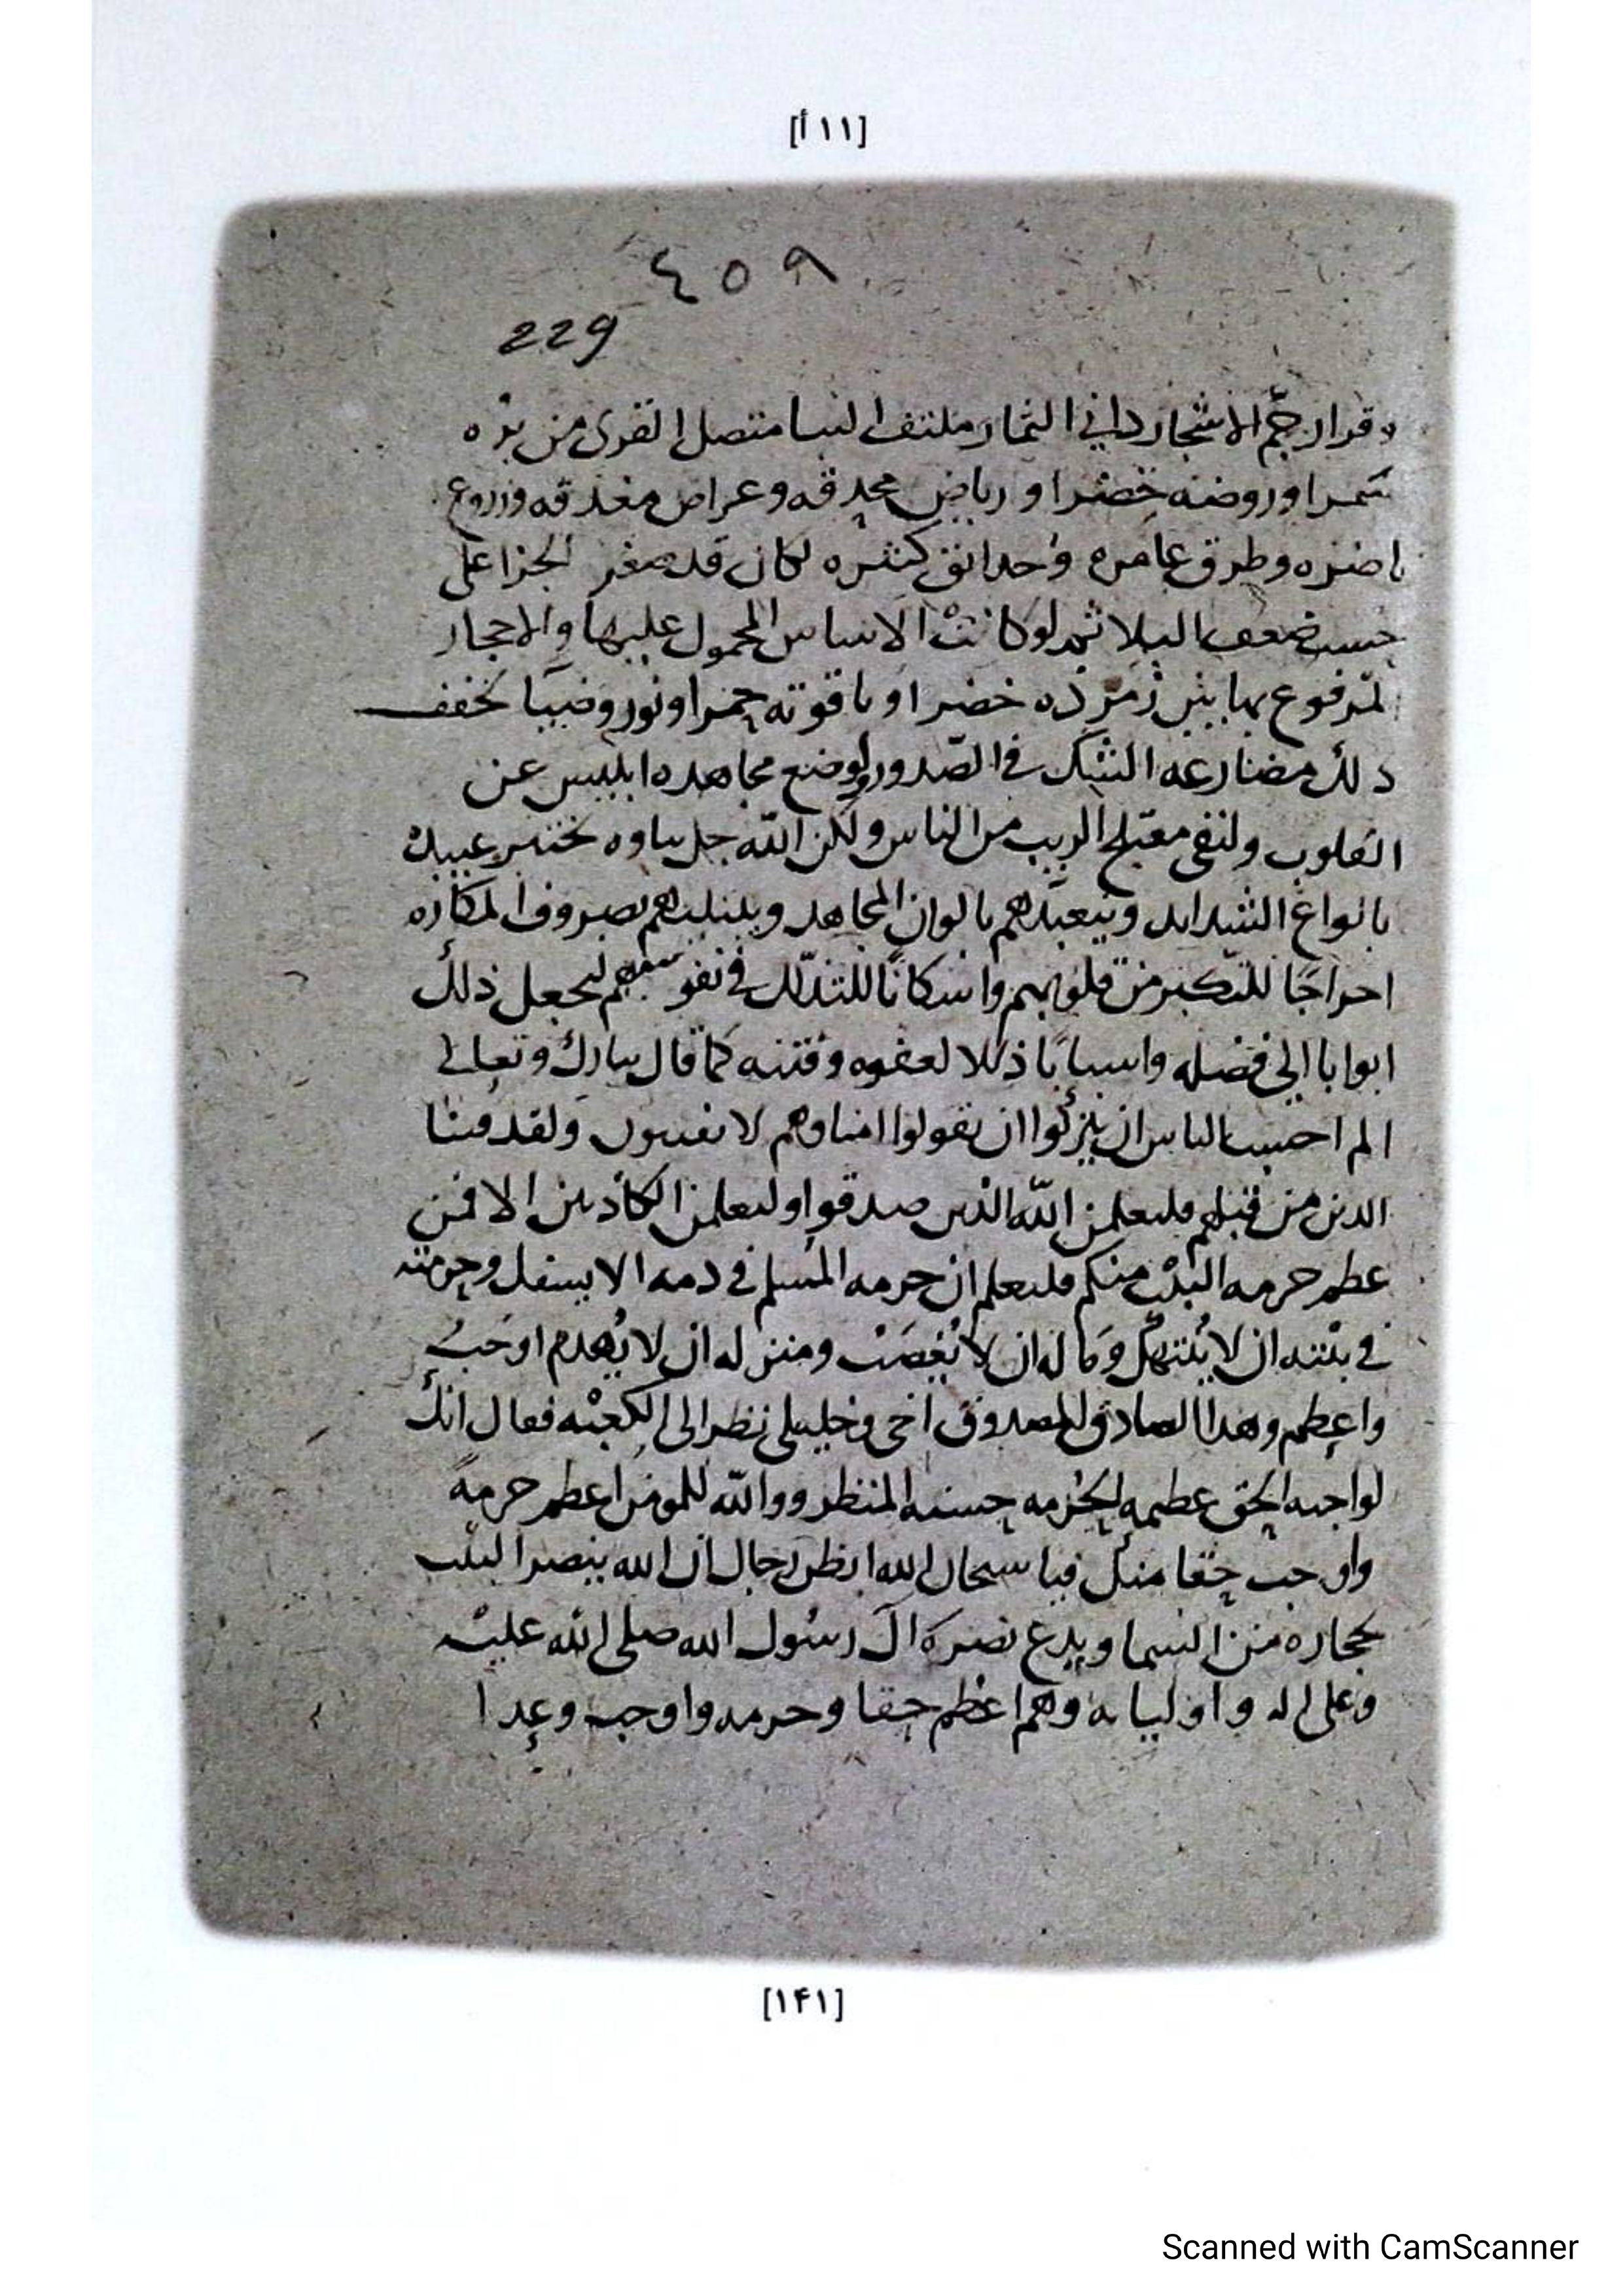 [١١أ]
٤٥٩
229
وقرار جمّ الاشجار داني الثمار ملتف البنا متصل القرى من برّه
سمرا وروضه خضرا و رياض محدقه وعراص مغدقه وزروع
ناضره وطرق عامره وحدائق كثيره لكان قد صغر الجزا على
حسب ضعف البلا ثم لو كانت الاساس المحمول عليها والاحجار
المرفوع بها بين زمرذه خضرا و ياقوته حمرا ونور وضيا لخفف
ذلك مضارعه الشك في الصّدور ولوضع مجاهده ابليس عن
القلوب ولنفى معتلج الريب من الناس ولكن اللّه جل ثناوه يختبر عبيده
بانواع الشدايد ويتعبّدهم بالوان المجاهد ويبتليهم بصروف المكاره
اخراجًا للتكبر من قلوبهم واسكانًا للتذلّل في نفوسهم ليجعل ذلك
ابوابا الى فضله واسبابًا ذللا لعفوه وفتنه كما قال تبارك وتعالى
الم احسب الناس ان يتركوا ان يقولوا امنا وهم لا يفتنون ولقد فتنا
الذين من قبلهم فليعلمن اللّه الذين صدقوا وليعلمن الكاذبين الا فمن
عظم حرمه البيت منكم فليعلم ان حرمه المسلم في دمه الا يسفك وحرمته
في بيته ان لا ينتهك وماله ان لا يغصب ومنزله ان لا يهدم اوجب
واعظم وهذا الصادق المصدوق اخى وخليلى نظر الى الكعبه فقال انك
لواجبه الحق عظيمه الحرمه حسنه المنظر ووالله للمومن اعظم حرمةً
واوجب حقا منك فيا سبحان الله ايظن رجال ان الله ينصر البيت
بحجاره من السما ويدع نصره آل رسول الله صلى الله عليه
وعلى اله و اوليايه وهم اعظم حقا وحرمه واوجب وعدا
[١۴١]
Scanned with CamScanner